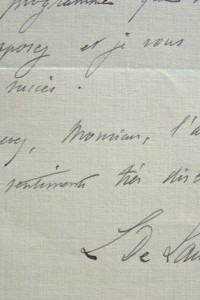 programme que
et je vous
succès.
Monsieur, l'a
sentiments très dist
L De Lau